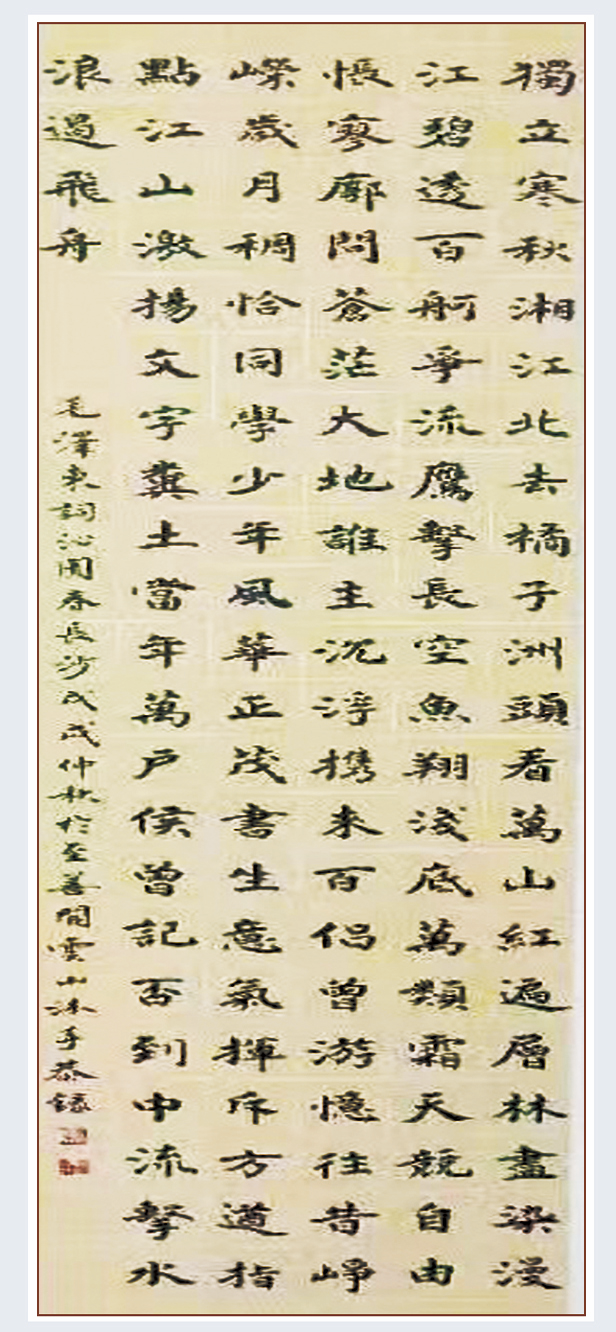 獨立寒秋湘江北去橘子洲頭看萬山紅遍層林盡染漫
江碧透百舸爭流鷹擊長空魚翔淺底萬類霜天競自由
悵寥廓問蒼茫大地誰主沉浮携來百侶曾游憶往昔崢
嶸歲月稠恰同學少年風華正茂書生意氣揮斥方遒指
點江山激揚文字糞土當年萬戶侯曾記否到中流擊水
浪遏飛舟
毛澤東詞沁園春長沙戊戌仲秋於至善閣雲山沐手恭錄